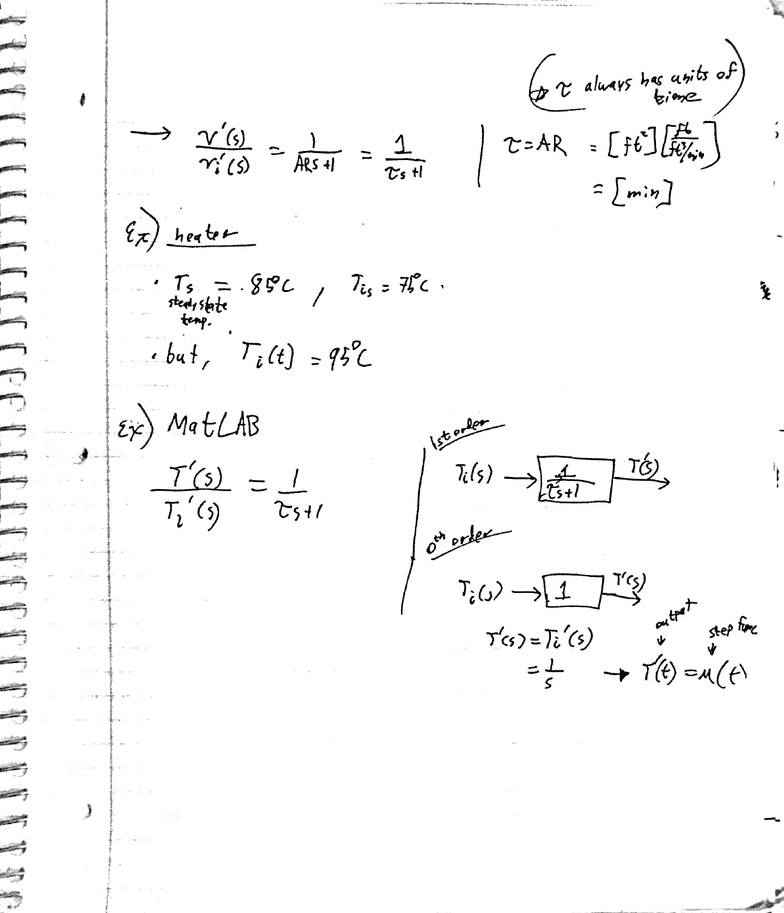 → τ always has units of
time
→ v'(s)/vi'(s) = 1/(ARs+1) = 1/(τs+1) | τ = AR = [ft²][ft/(ft³/min)]
= [min]
Ex) heater
· Ts = 85°C , Tis = 75°C .
steady state
temp.
· but, Ti(t) = 95°C
Ex) MatLAB
T'(s)/Ti'(s) = 1/(τs+1)
1st order
Ti(s) → 1/(τs+1) T'(s) →
0th order
Ti(s) → 1 T'(s) →
output
step func
T'(s) = Ti'(s)
= 1/s → T'(t) = u(t)